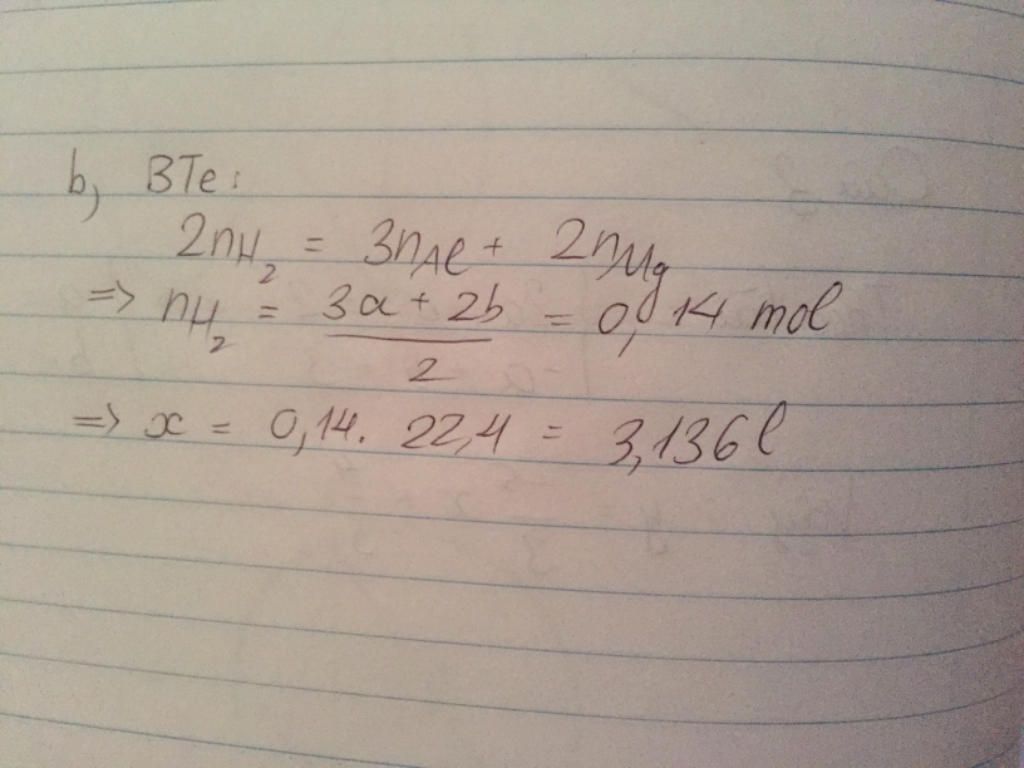 b, BTe:
2nH₂ = 3nAl + 2nMg
=> nH₂ = (3a + 2b)/2 = 0,14 mol
=> x = 0,14. 22,4 = 3,136 l